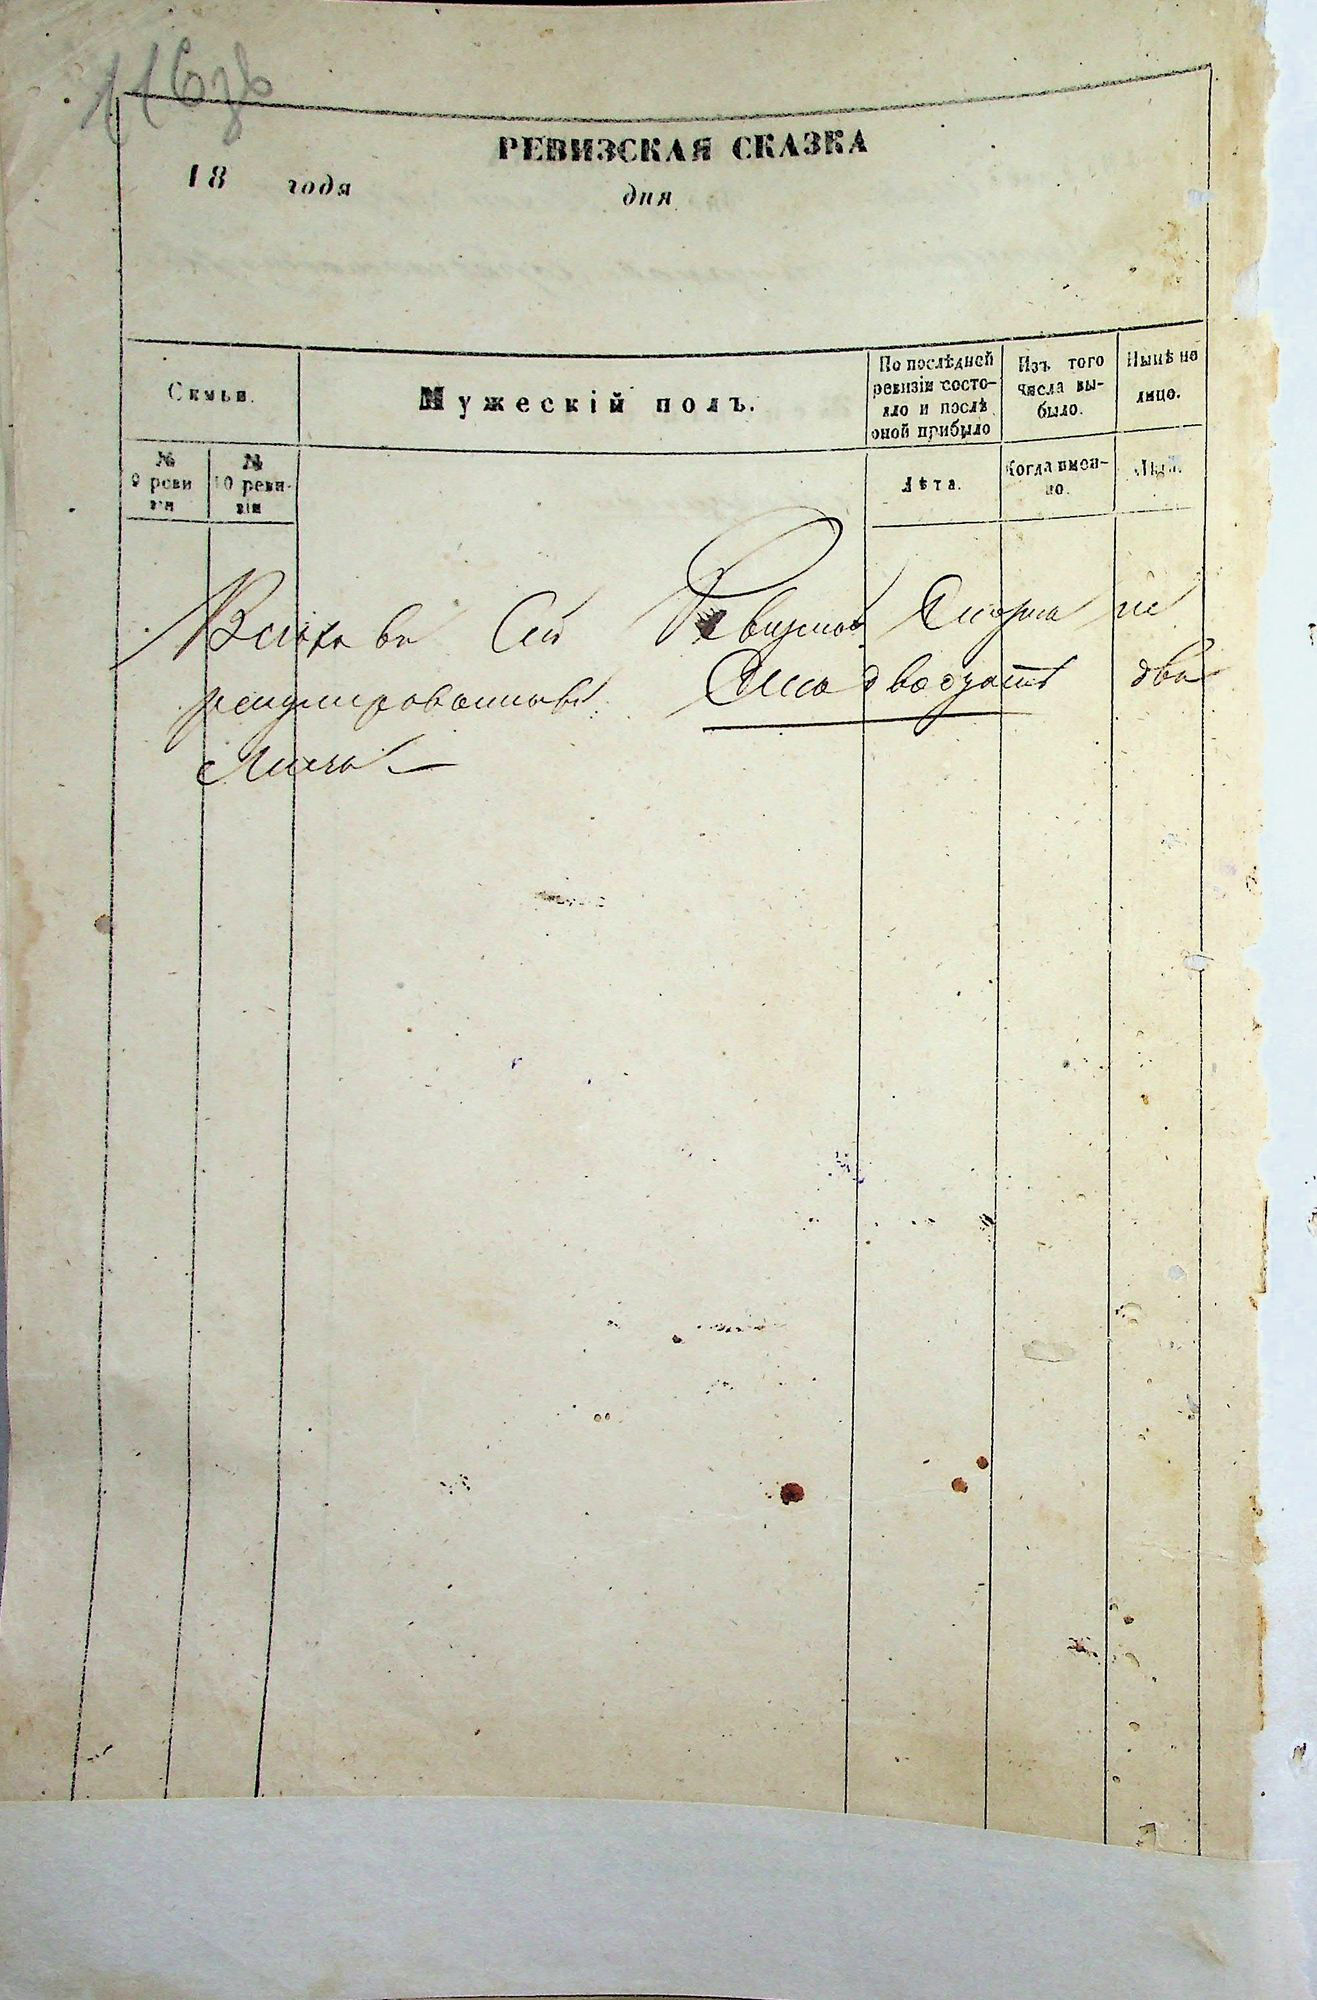 116 об
РЕВИЗСКАЯ СКАЗКА
18 года дня
Семьи.
Мужескій полъ.
По послѣдней ревизіи состояло и послѣ оной прибыло
Изъ того числа выбыло.
Нынѣ на лицо.
№ 9 ревизіи
№ 10 ревизіи
Лѣта.
Когда именно.
Лѣта.
Всѣхъ въ Сей Ревизской Скаски
двадцать два
Листа